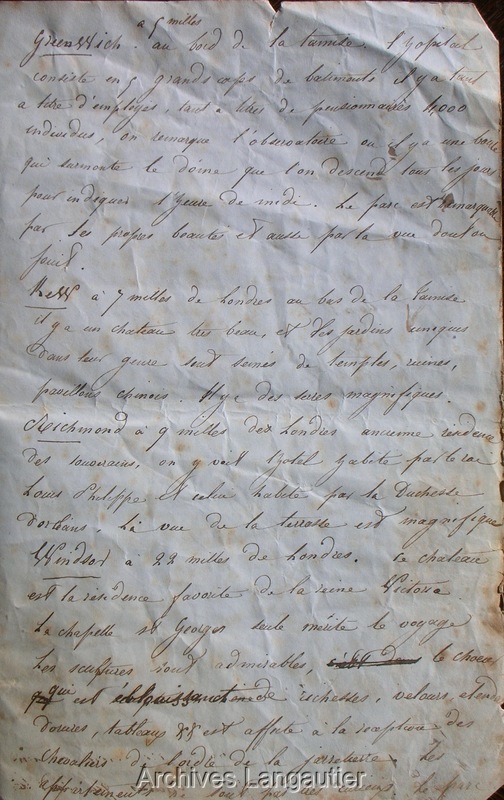 à 5 milles
Greenwich. au bord de la tamise l'hopital
consiste en 5 grands corps de batiments il y a tant
a titre d'employés, tant a titre de pensionnaires 4,000
individus, on remarque l'observatoire ou il y a une boule
qui surmonte le dôme que l'on descend tous les jours
pour indiquer l'heure de midi. Le parc est remarquable
par ses propres beautés et aussi par la vue dont on
jouit.
Kew à 7 milles de Londres au bas de la Tamise
il y a un chateau très beau, et des jardins uniques
dans leur genre sont semés de temples, ruines,
pavillons chinois. Il y a des serres magnifiques.
Richmond à 9 milles de Londres ancienne residence
des souverains, on y voit hotel habité par le roi
Louis Philippe et celui habité par la Duchesse
d'orléans. La vue de la terrasse est magnifique
Windsor à 22 milles de Londres. Le chateau
est la résidence favorite de la reine Victoria
La chapelle st Georges seule mérite le voyage
Les sculptures sont admirables, le choeur
qui est de richesses, velours,
dorures, tableaux est affecté à la reception des
chevaliers de l'ordre de la jarretière. Les
appartements ne sont pas Le parc
Archives Langautier